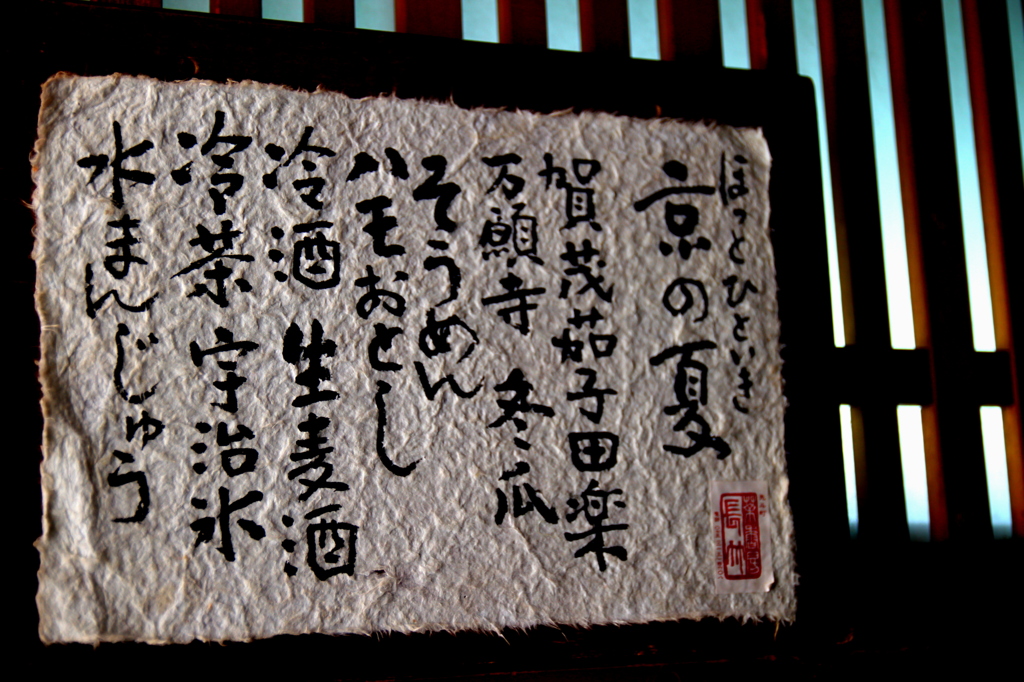 ほっとひといき
京の夏
賀茂茄子田楽
万願寺 冬瓜
そうめん
ハモおとし
冷酒 生麦酒
冷茶 宇治氷
水まんじゅう